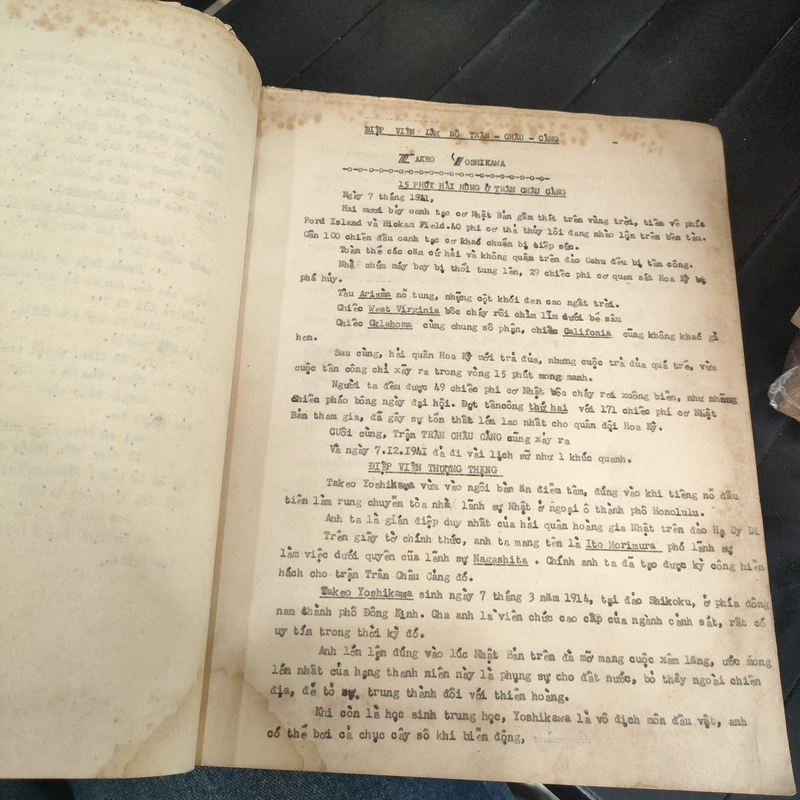 ĐIỆP VIÊN LÀM NỔ TRÂN - CHÂU - CẢNG
TAKEO YOSHIKAWA
15 PHÚT HÃI HÙNG Ở TRÂN CHÂU CẢNG
Ngày 7 tháng 1941,
Hai mươi bảy oanh tạc cơ Nhật Bản gầm thét trên vùng trời, tiến về phía
Pord Island và Hickam Field.40 phi cơ thả thủy lôi đang nhào lộn trên bến tàn.
Gần 100 chiến đấu oanh tạc cơ khác chuẩn bị tiếp sức.
Toàn thể các căn cứ hải và không quân trên đảo Oahu đều bị tấn công.
Nhà chứa máy bay bị thổi tung lên, 29 chiếc phi cơ quan sát Hoa Kỳ bị
phá hủy.
Tàu Ariama nổ tung, những cột khói đen cao ngất trời.
Chiếc West Virginia bốc cháy rồi chìm lỉm dưới bể sâu
Chiếc Oklahoma cùng chung số phận, chiếc Califonia cũng không khác gì
hơn.
Sau cùng, hải quân Hoa Kỳ mới trả đủa, nhưng cuộc trả đủa quá trể, vừa
cuộc tấn công chỉ xảy ra trong vòng 15 phút mong manh.
Người ta đếm được 49 chiếc phi cơ Nhật bốc cháy rơi xuống biển, như những
chiếc pháo bông ngày đại hội. Đợt tấncông thứ hai với 171 chiếc phi cơ Nhật
Bản tham gia, đã gây sự tổn thất lớn lao nhất cho quân đội Hoa Kỳ.
CUối cùng, Trận TRÂN CHÂU CẢNG cũng xảy ra
Và ngày 7.12.1941 đã đi vài lịch sử như 1 khúc quanh.
ĐIỆP VIÊN THƯỢNG THẶNG
Takeo Yoshikawa vừa vào ngồi bàn ăn điểm tâm, đúng vào khi tiếng nổ đầu
tiên làm rung chuyển tòa nhà lãnh sự Nhật ở ngoại ô thành phố Honolulu.
Anh ta là gián điệp duy nhất của hải quân hoàng gia Nhật trên đảo Hạ Uy Di
Trên giấy tờ chính thức, anh ta mang tên là Ito Morimura phó lãnh sự
làm việc dưới quyền của lãnh sự Nagashita . Chính anh ta đã tạo được kỳ công hiển
hách cho trận Trân Châu Cảng đó.
Takeo Yoshikawa sinh ngày 7 tháng 3 năm 1914, tại đảo Shikoku, ở phía đông
nam thành phố Đông Kinh. Cha anh là viên chức cao cấp của ngành cảnh sát, rất có
uy tín trong thời kỳ đó.
Anh lớn lện đúng vào lúc Nhật Bản trên đà mở mang cuộc xâm lăng, ước mong
lớn nhất của hạng thanh niên này là phụng sự cho đất nước, bỏ thây ngoài chiến
địa, để tỏ sự trung thành đối với thiên hoàng.
Khi còn là học sinh trung học, Yoshikawa là vô địch môn đấu vật, anh
có thể bơi cả chục cây số khi biển động,